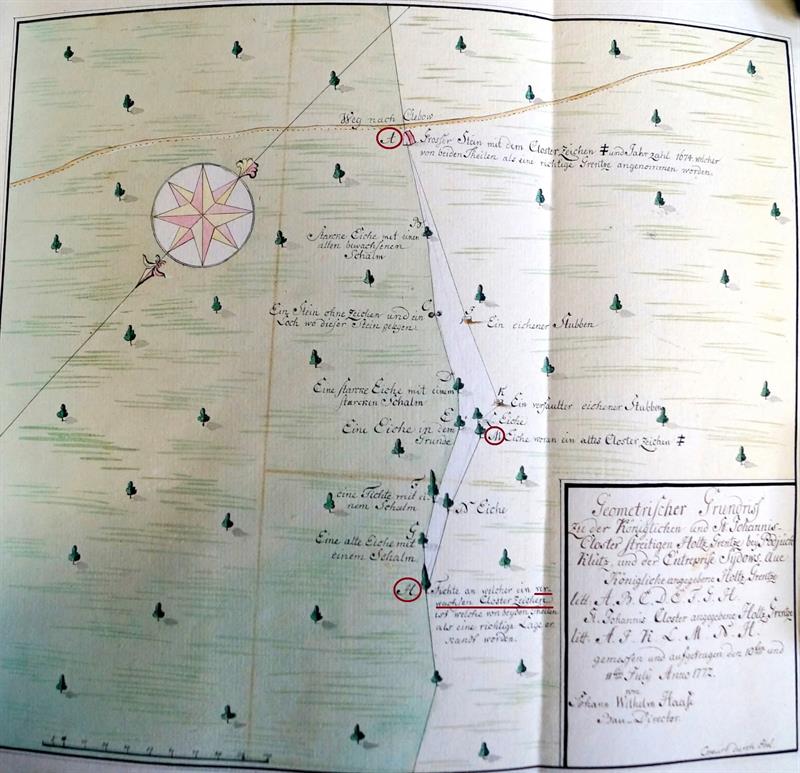 Weg nach Clebow
A
Grosser Stein mit dem Closter Zeichen ‡ und Jahr zahl 1674 welcher
von beiden Theilen als eine richtige Grentze angenommen worden.
B
Starcke Eiche mit einem
alten bewachsenen
Schalm
C
Ein Stein ohne Zeichen und ein
Loch wo dieser Stein gelegen.
J
Ein eichener Stubben
D
Eine starcke Eiche mit einem
starcken Schalm
K
Ein verfaulter eichener Stubben
E
Eine Eiche in dem
Grunde
L
Eiche
M
Eiche woran ein altes Closter zeichen ‡
F
eine Fichte mit ei-
nem Schalm
N Eiche
G
Eine alte Eiche mit
einem Schalm
H
Fichte an welcher ein ver-
wachsen Closter Zeichen
ist welche von beyden Theilen
als eine richtige Lage er-
kandt worden.
Geometrischer Grundriss
der Königlichen und St. Johannis-
Closter streitigen Holtz Grentze bei Podjuch
Klütz, und der Entreprise Sydows Aue
Königliche angegebene Holtz Grentze
litt. A. B. C. D. E. F. G. H.
St. Johannis Closter angegebene Holtz Grentze
litt. A. J. K. L. M. N. H.
gemessen und aufgetragen den 10ten und
11ten July Anno 1772.
von
Johann Wilhelm Haase
Bau-Director.
durch